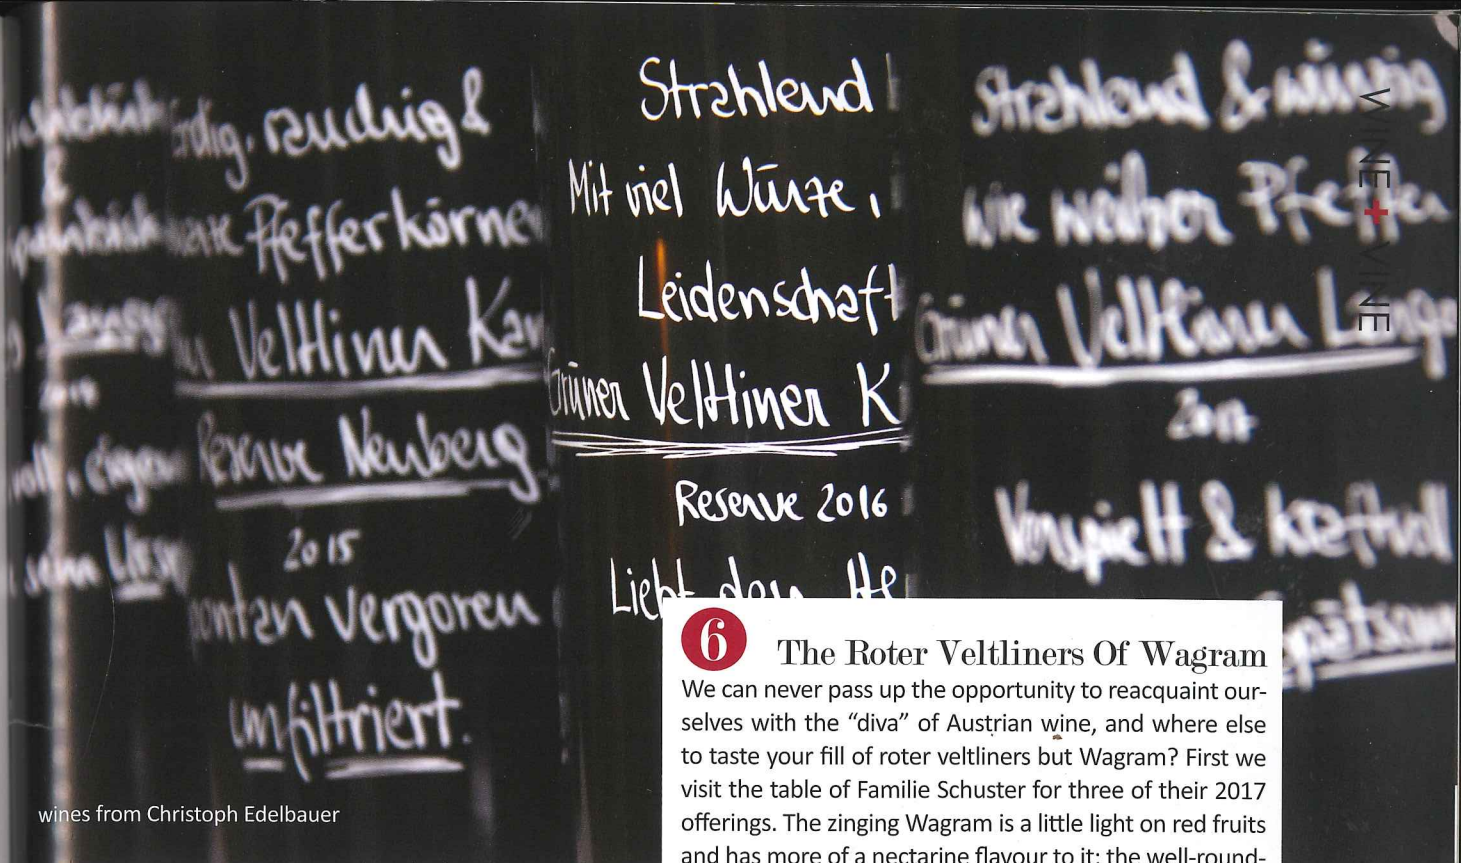 rdig, rauchig &
Pfefferkörner
Veltliner Kam
Reserve Neuberg
2015
pontan vergoren
unfiltriert.
Strahlend
Mit viel Würze,
Leidenschaft
Grüner Veltliner K
Reserve 2016
Liebt den He
Strahlend & würzig
wie weißer Pfeffer
Grüner Veltliner Lange
2017
Verspielt & kraftvoll
WINE+VINE
wines from Christoph Edelbauer
6 The Roter Veltliners Of Wagram
We can never pass up the opportunity to reacquaint our-
selves with the “diva” of Austrian wine, and where else
to taste your fill of roter veltliners but Wagram? First we
visit the table of Familie Schuster for three of their 2017
offerings. The zinging Wagram is a little light on red fruits
and has more of a nectarine flavour to it; the well-round-